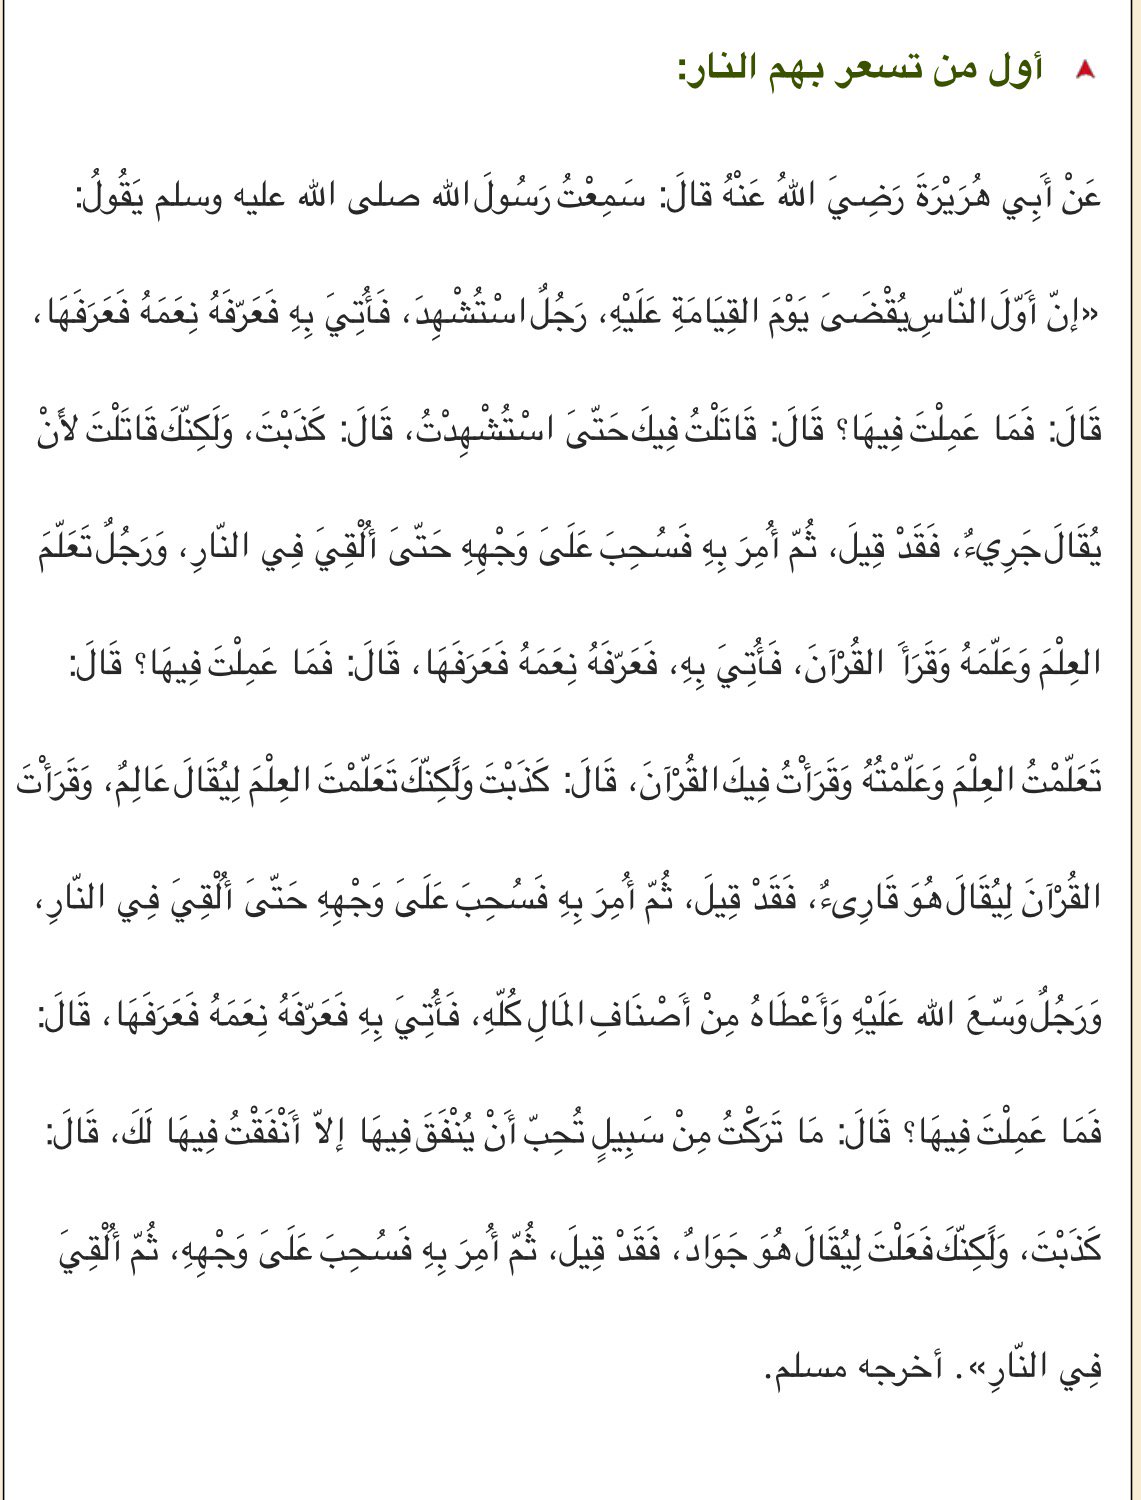 أول من تسعر بهم النار:
عَنْ أَبِي هُرَيْرَةَ رَضِيَ اللهُ عَنْهُ قالَ: سَمِعْتُ رَسُولَ الله صلى الله عليه وسلم يَقُولُ:
«إنّ أَوّلَ النّاسِ يُقْضَىَ يَوْمَ القِيَامَةِ عَلَيْهِ، رَجُلٌ اسْتُشْهِدَ، فَأُتِيَ بِهِ فَعَرّفَهُ نِعَمَهُ فَعَرَفَهَا،
قَالَ: فَمَا عَمِلْتَ فِيهَا؟ قَالَ: قَاتَلْتُ فِيكَ حَتّىَ اسْتُشْهِدْتُ، قَالَ: كَذَبْتَ، وَلَكِنّكَ قَاتَلْتَ لأَنْ
يُقَالَ جَرِيءٌ، فَقَدْ قِيلَ، ثُمّ أُمِرَ بِهِ فَسُحِبَ عَلَىَ وَجْهِهِ حَتّىَ أُلْقِيَ فِي النّارِ، وَرَجُلٌ تَعَلّمَ
العِلْمَ وَعَلّمَهُ وَقَرَأَ القُرْآنَ، فَأُتِيَ بِهِ، فَعَرّفَهُ نِعَمَهُ فَعَرَفَهَا، قَالَ: فَمَا عَمِلْتَ فِيهَا؟ قَالَ:
تَعَلّمْتُ العِلْمَ وَعَلّمْتُهُ وَقَرَأْتُ فِيكَ القُرْآنَ، قَالَ: كَذَبْتَ وَلََكِنّكَ تَعَلّمْتَ العِلْمَ لِيُقَالَ عَالِمٌ، وَقَرَأْتَ
القُرْآنَ لِيُقَالَ هُوَ قَارِىءٌ، فَقَدْ قِيلَ، ثُمّ أُمِرَ بِهِ فَسُحِبَ عَلَىَ وَجْهِهِ حَتّىَ أُلْقِيَ فِي النّارِ،
وَرَجُلٌ وَسّعَ الله عَلَيْهِ وَأَعْطَاهُ مِنْ أَصْنَافِ المَالِ كُلّهِ، فَأُتِيَ بِهِ فَعَرّفَهُ نِعَمَهُ فَعَرَفَهَا، قَالَ:
فَمَا عَمِلْتَ فِيهَا؟ قَالَ: مَا تَرَكْتُ مِنْ سَبِيلٍ تُحِبّ أَنْ يُنْفَقَ فِيهَا إلاّ أَنْفَقْتُ فِيهَا لَكَ، قَالَ:
كَذَبْتَ، وَلََكِنّكَ فَعَلْتَ لِيُقَالَ هُوَ جَوَادٌ، فَقَدْ قِيلَ، ثُمّ أُمِرَ بِهِ فَسُحِبَ عَلَىَ وَجْهِهِ، ثُمّ أُلْقِيَ
فِي النّارِ». أخرجه مسلم.